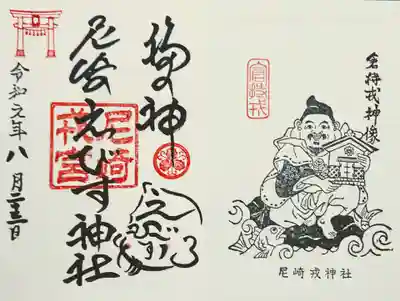 宮持戎神像
宮持戎
尼崎戎神社
福の神
尼崎えびす神社
尼崎戎宮
えびす
令和元年八月二十三日